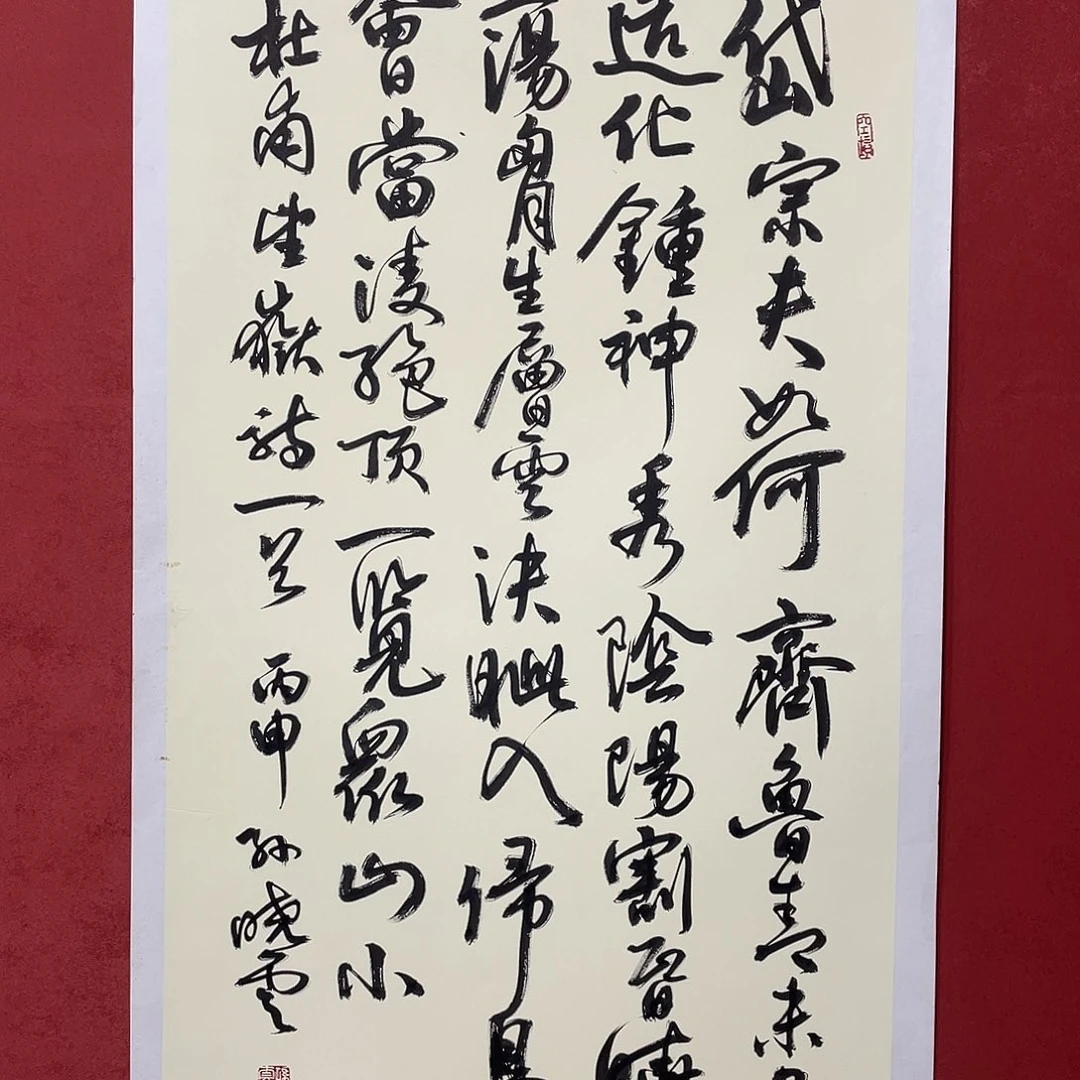 岱宗夫如何齊魯青未
造化鍾神秀陰陽割昏曉
盪胷生層雲決眥入歸鳥
會當凌絕頂一覽衆山小
杜甫望嶽詩一首丙申孫曉雲